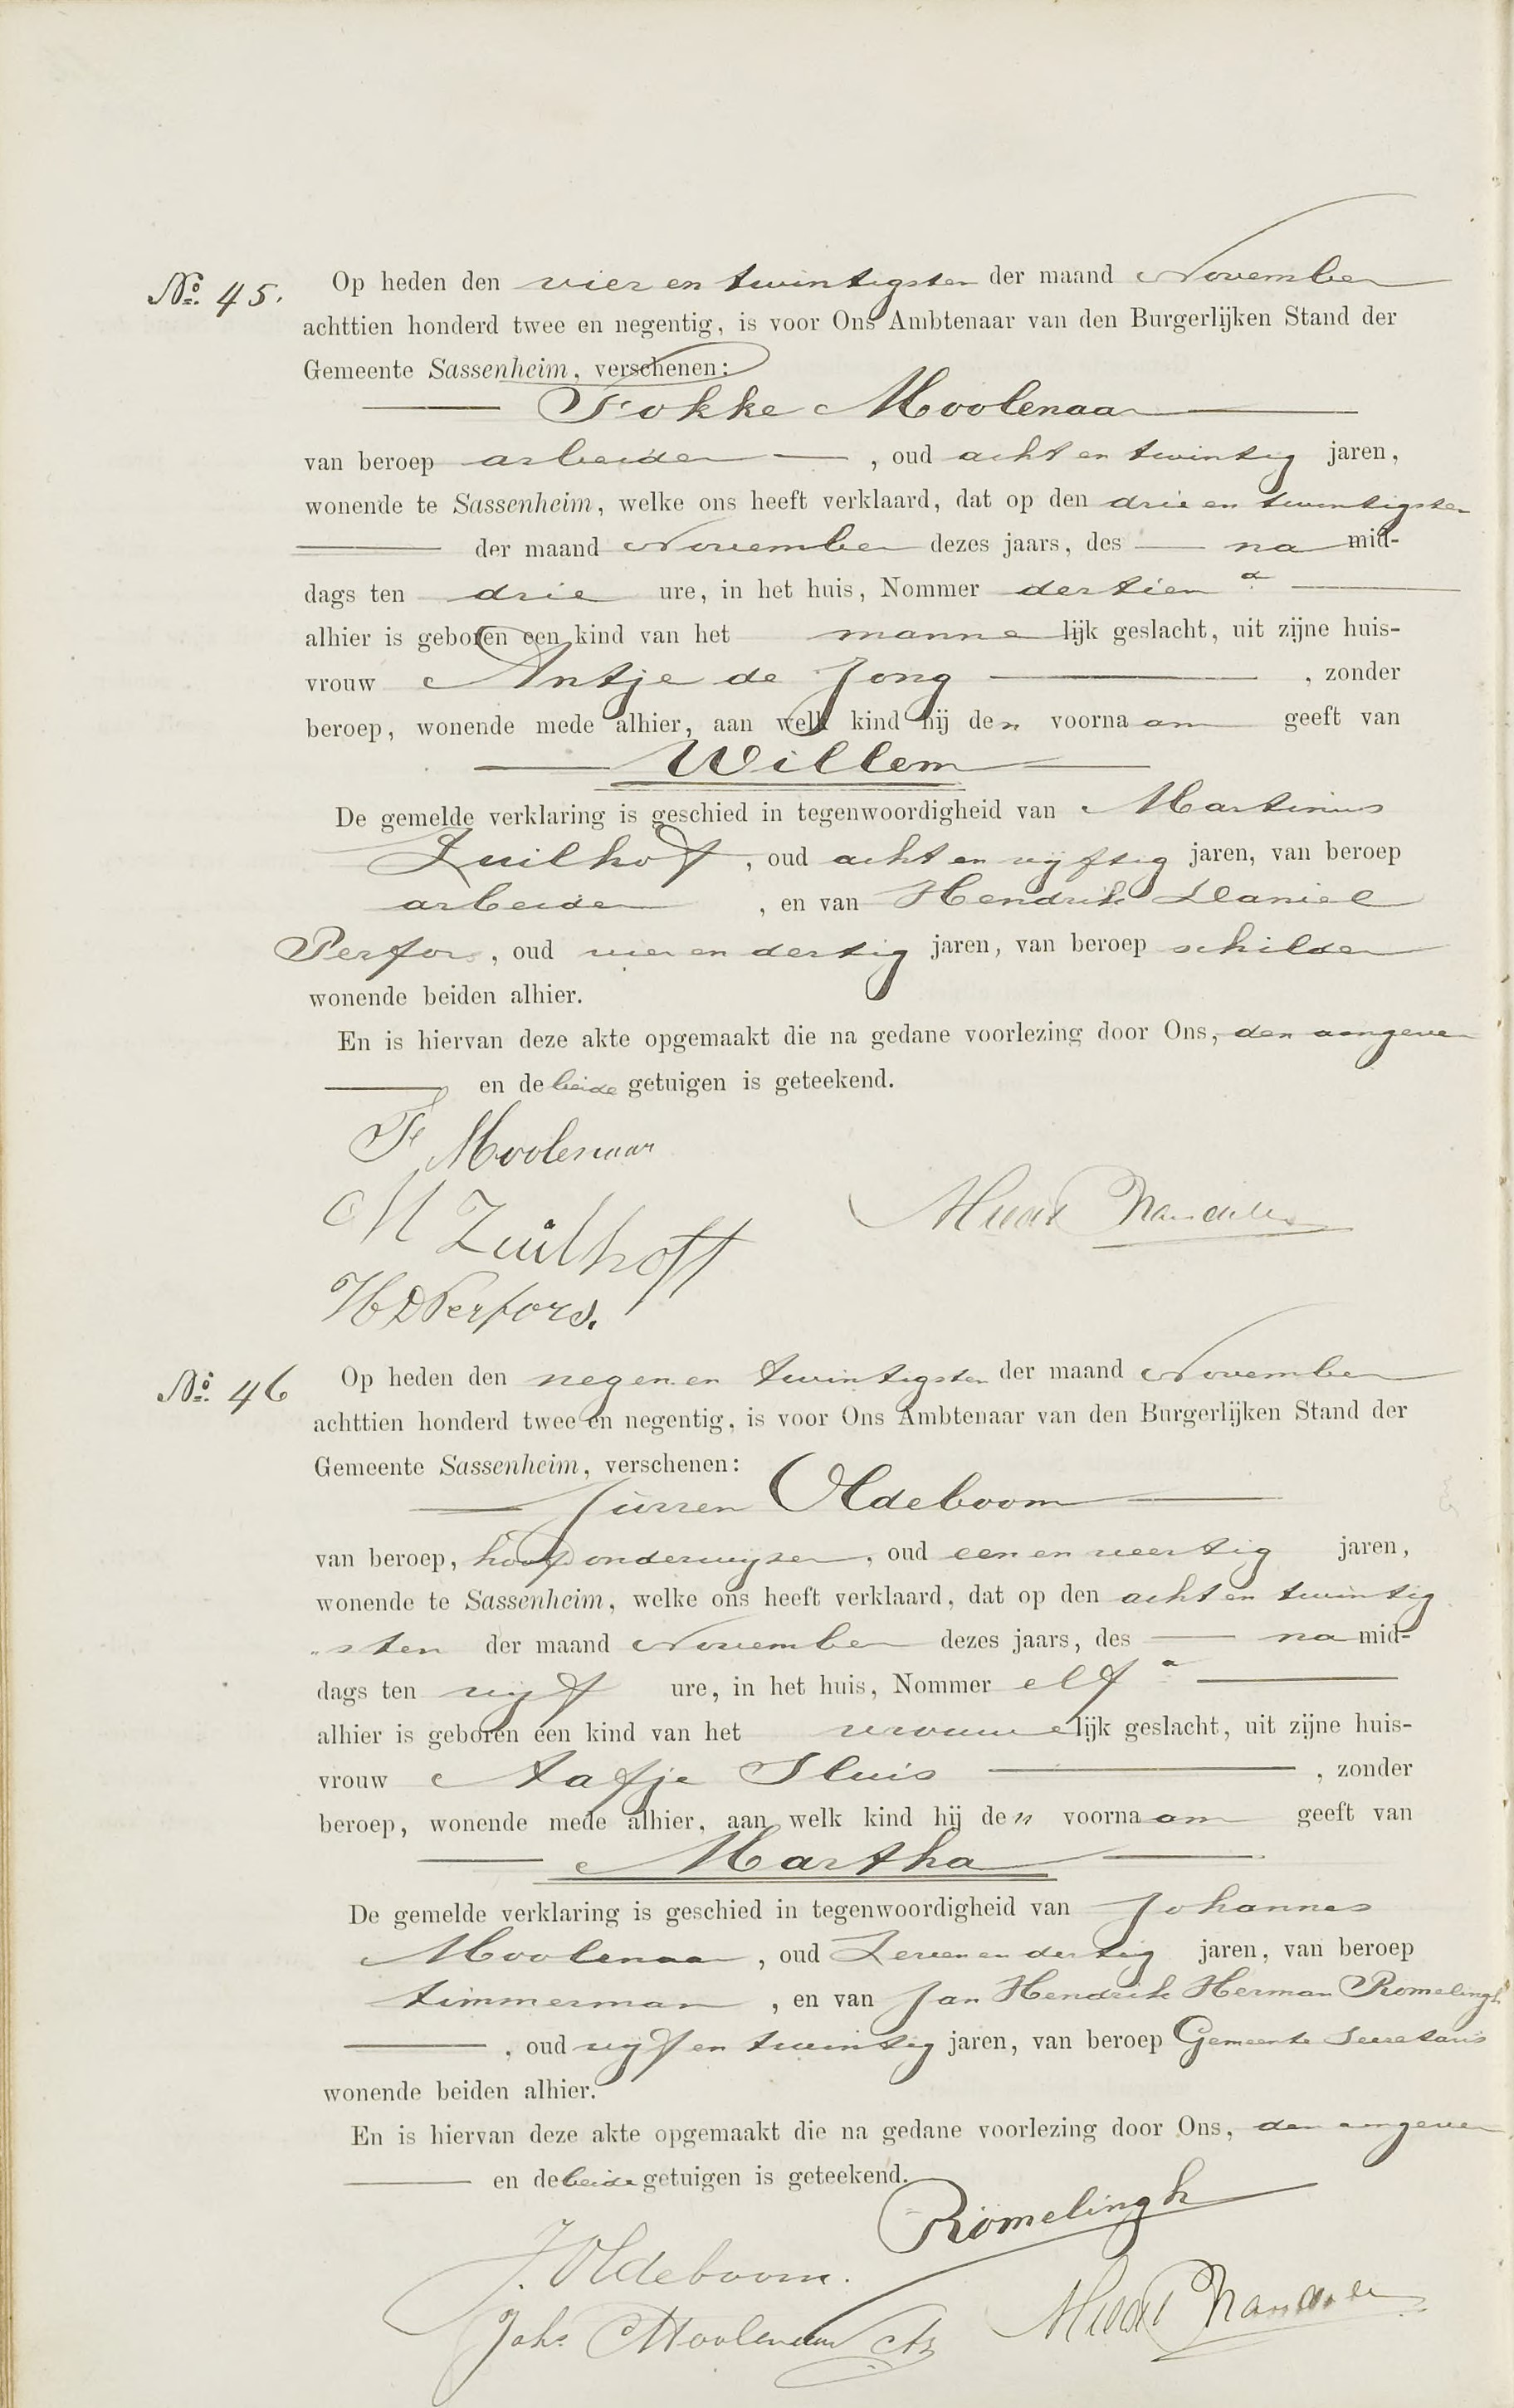 No. 45. Op heden den vier en twintigsten der maand November
achttien honderd twee en negentig, is voor Ons Ambtenaar van den Burgerlijken Stand der
Gemeente Sassenheim, verschenen:
Fokke Moolenaar
van beroep arbeider, oud acht en twintig jaren,
wonende te Sassenheim, welke ons heeft verklaard, dat op den drie en twintigsten
der maand November dezes jaars, des na mid-
dags ten drie ure, in het huis, Nommer dertien a
alhier is geboren een kind van het mannelijk geslacht, uit zijne huis-
vrouw Antje de Jong, zonder
beroep, wonende mede alhier, aan welk kind hij den voornaam geeft van
Willem
De gemelde verklaring is geschied in tegenwoordigheid van Martinus
Zuilhof, oud acht en vijftig jaren, van beroep
arbeider, en van Hendrik Daniel
Perfors, oud vier en dertig jaren, van beroep schilder
wonende beiden alhier.
En is hiervan deze akte opgemaakt die na gedane voorlezing door Ons, den aangever
en de beide getuigen is geteekend.
F Moolenaar
M Zuilhoff
H D Perfors.
No. 46 Op heden den negen en twintigsten der maand November
achttien honderd twee en negentig, is voor Ons Ambtenaar van den Burgerlijken Stand der
Gemeente Sassenheim, verschenen:
Jurren Oldeboom
van beroep, hoofdonderwijzer, oud een en veertig jaren,
wonende te Sassenheim, welke ons heeft verklaard, dat op den acht en twintig
sten der maand November dezes jaars, des na mid-
dags ten vijf ure, in het huis, Nommer elf a
alhier is geboren een kind van het vrouwelijk geslacht, uit zijne huis-
vrouw Aafje Sluis, zonder
beroep, wonende mede alhier, aan welk kind hij den voornaam geeft van
Martha
De gemelde verklaring is geschied in tegenwoordigheid van Johannes
Moolenaar, oud Zeven en dertig jaren, van beroep
timmerman, en van Jan Hendrik Herman Romelingh
, oud vijf en twintig jaren, van beroep Gemeente Secretaris
wonende beiden alhier.
En is hiervan deze akte opgemaakt die na gedane voorlezing door Ons, den aangever
en de beide getuigen is geteekend.
Romelingh
J. Oldeboom.
Johs Moolenaar